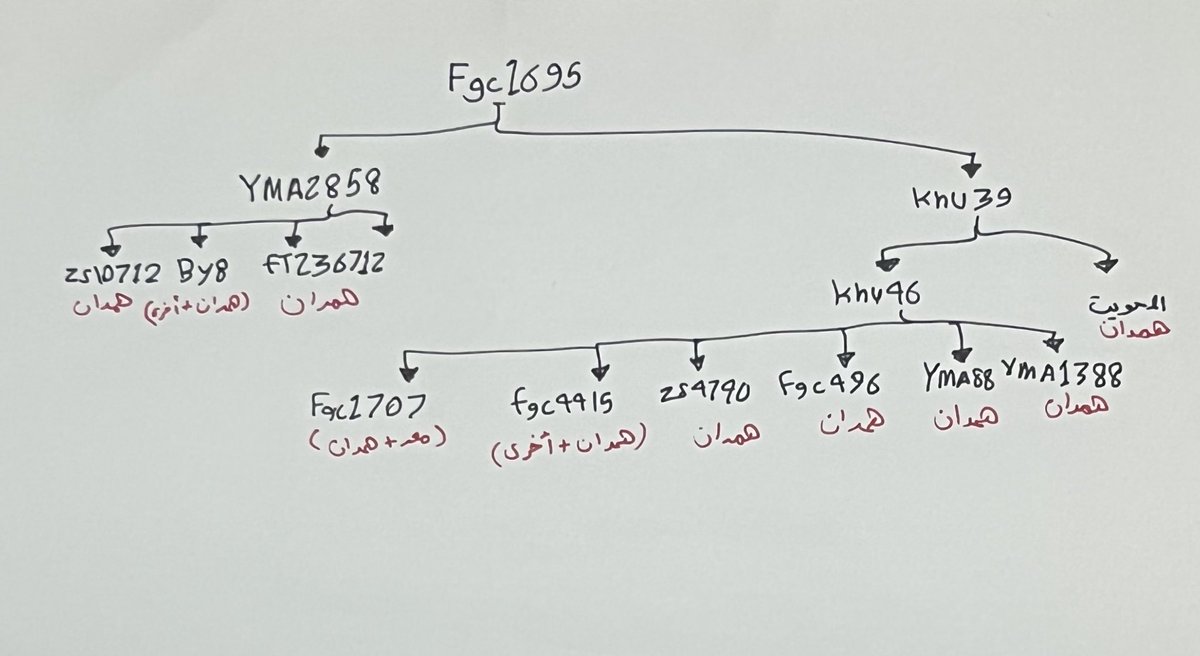 Fgc1695
YMA2858
khu39
zs10712 By8 fT236712
همدان (همدان+أخرى) همدان
khu46
المحويت
همدان
Fgc1707 fgc4415 zs4790 Fgc496 YMA88 YMA1388
(معد+همدان) (همدان+أخرى) همدان همدان همدان همدان